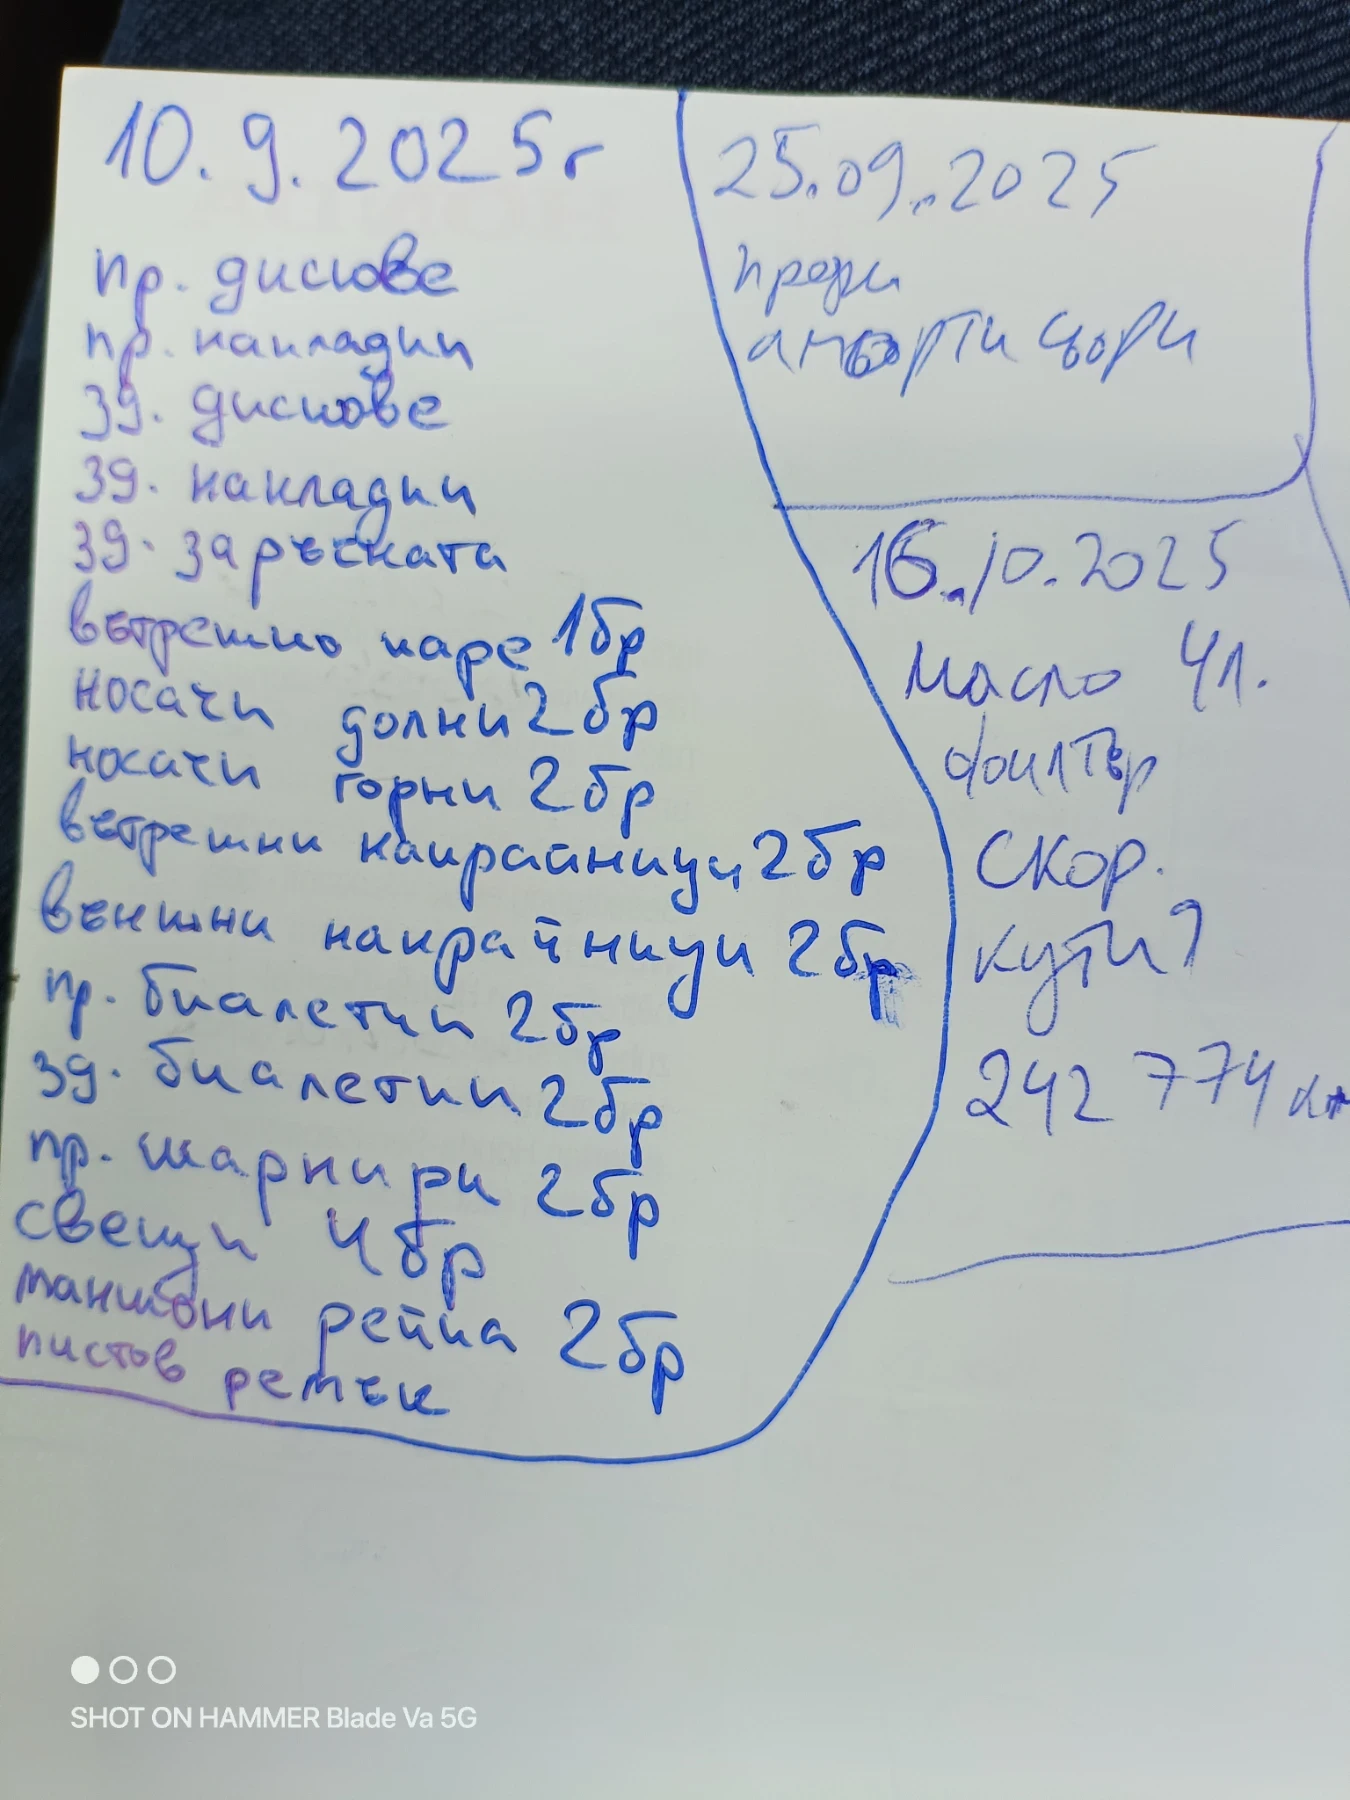 10.9.2025г
пр. дискове
пр. накладки
зд. дискове
зд. накладки
зд. заръчката
вътрешно каре 1бр
носачи долни 2бр
носачи горни 2бр
вътрешни накрайници 2бр
външни накрайници 2бр
пр. биалетки 2бр
зд. биалетки 2бр
пр. шарнири 2бр
свещи 4бр
маншони рейка 2бр
пистов ремък
25.09.2025
преди
амортисьори
16.10.2025
масло 4л.
филтър
скор.
кутия
242 774 км
SHOT ON HAMMER Blade Va 5G